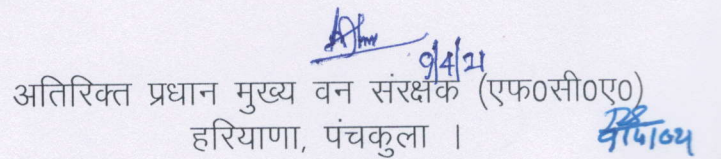 9/4/21
अतिरिक्त प्रधान मुख्य वन संरक्षक (एफ0सी0ए0)
हरियाणा, पंचकुला ।